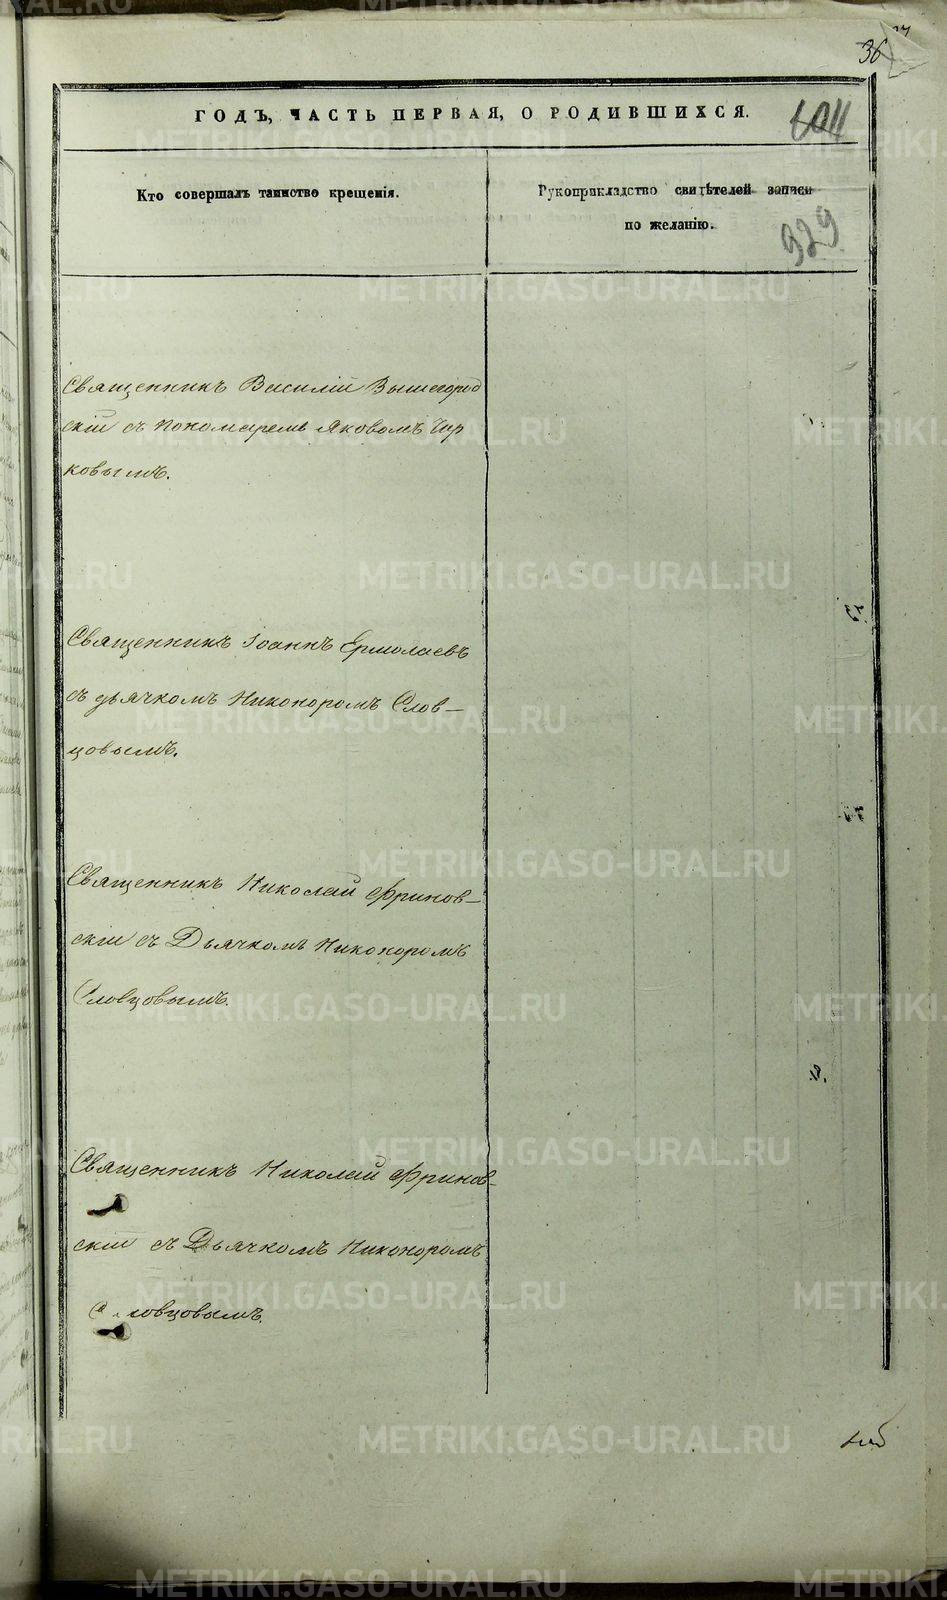 36
ГОДЪ, ЧАСТЬ ПЕРВАЯ, О РОДИВШИХСЯ.
1011
Кто совершалъ таинство крещенія.
Рукоприкладство свидѣтелей записи
по желанію.
929
Священникъ Василій Вышегород
скій съ пономаремъ Яковомъ Чир
ковымъ.
Священникъ Іоаннъ Ермолаевъ
съ дьячкомъ Никоноромъ Слов–
цовымъ.
Священникъ Николай Фринов–
скій съ Дьячкомъ Никоноромъ
Словцовымъ.
Священникъ Николай Фринов–
скій съ Дьячкомъ Никоноромъ
Словцовымъ.
METRIKI.GASO-URAL.RU